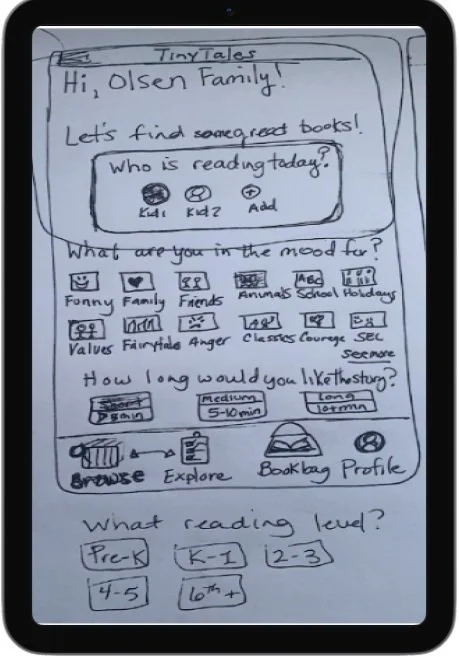 TinyTales
Hi, Olsen Family!
Let's find some great books!
Who is reading today?
Kid 1 Kid 2 Add
What are you in the mood for?
ABC
Funny Family Friends Animals School Holidays
Values Fairytale Anger Classics Courage SEL
See more
How long would you like the story?
Short Medium Long
5 min 5-10 min 10+ min
Browse Explore Bookbag Profile
What reading level?
Pre-K K-1 2-3
4-5 6th +